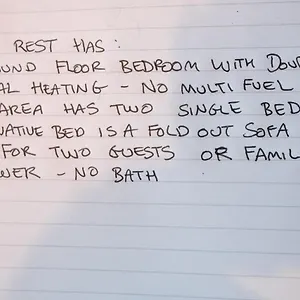 REST HAS:
OUND FLOOR BEDROOM WITH DOU
AL HEATING - NO MULTI FUEL
AREA HAS TWO SINGLE BED
NATIVE BED IS A FOLD OUT SOFA
FOR TWO GUESTS OR FAMIL
WER - NO BATH